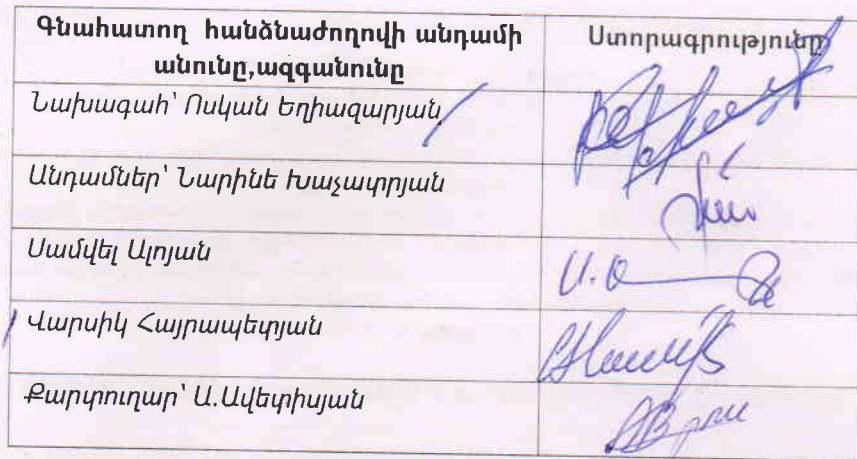 Գնահատող հանձնաժողովի անդամի
անունը,ազգանունը
Ստորագրությունը
Նախագահ՝ Ոսկան Եղիազարյան
Անդամներ՝ Նարինե Խաչատրյան
Սամվել Ալոյան
Վարսիկ Հայրապետյան
Քարտուղար՝ Ա.Ավետիսյան